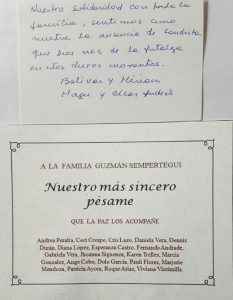 Nuestra Solidaridad con toda la
familia, sentimos como
nuestra la ausencia de Conchita
que Dios nos de la fortaleza
en estos duros momentos.
Bolívar y Miriam
Magu y Andrés
A LA FAMILIA GUZMÁN SEMPERTEGUI
Nuestro más sincero
pésame
QUE LA PAZ LOS ACOMPAÑE
Andrea Peralta, Ceci Crespo, Cris Lazo, Daniela Vera, Dennis
Durán, Diana López, Esperanza Castro, Fernando Andrade,
Gabriela Vera, Jhoanna Siguenza, Karen Trelles, Marcia
Gonzalez, Ange Cobo, Dolo García, Pauli Flores, Marjorie
Mendoza, Patricia Ayora, Roque Arias, Viviana Vintimilla